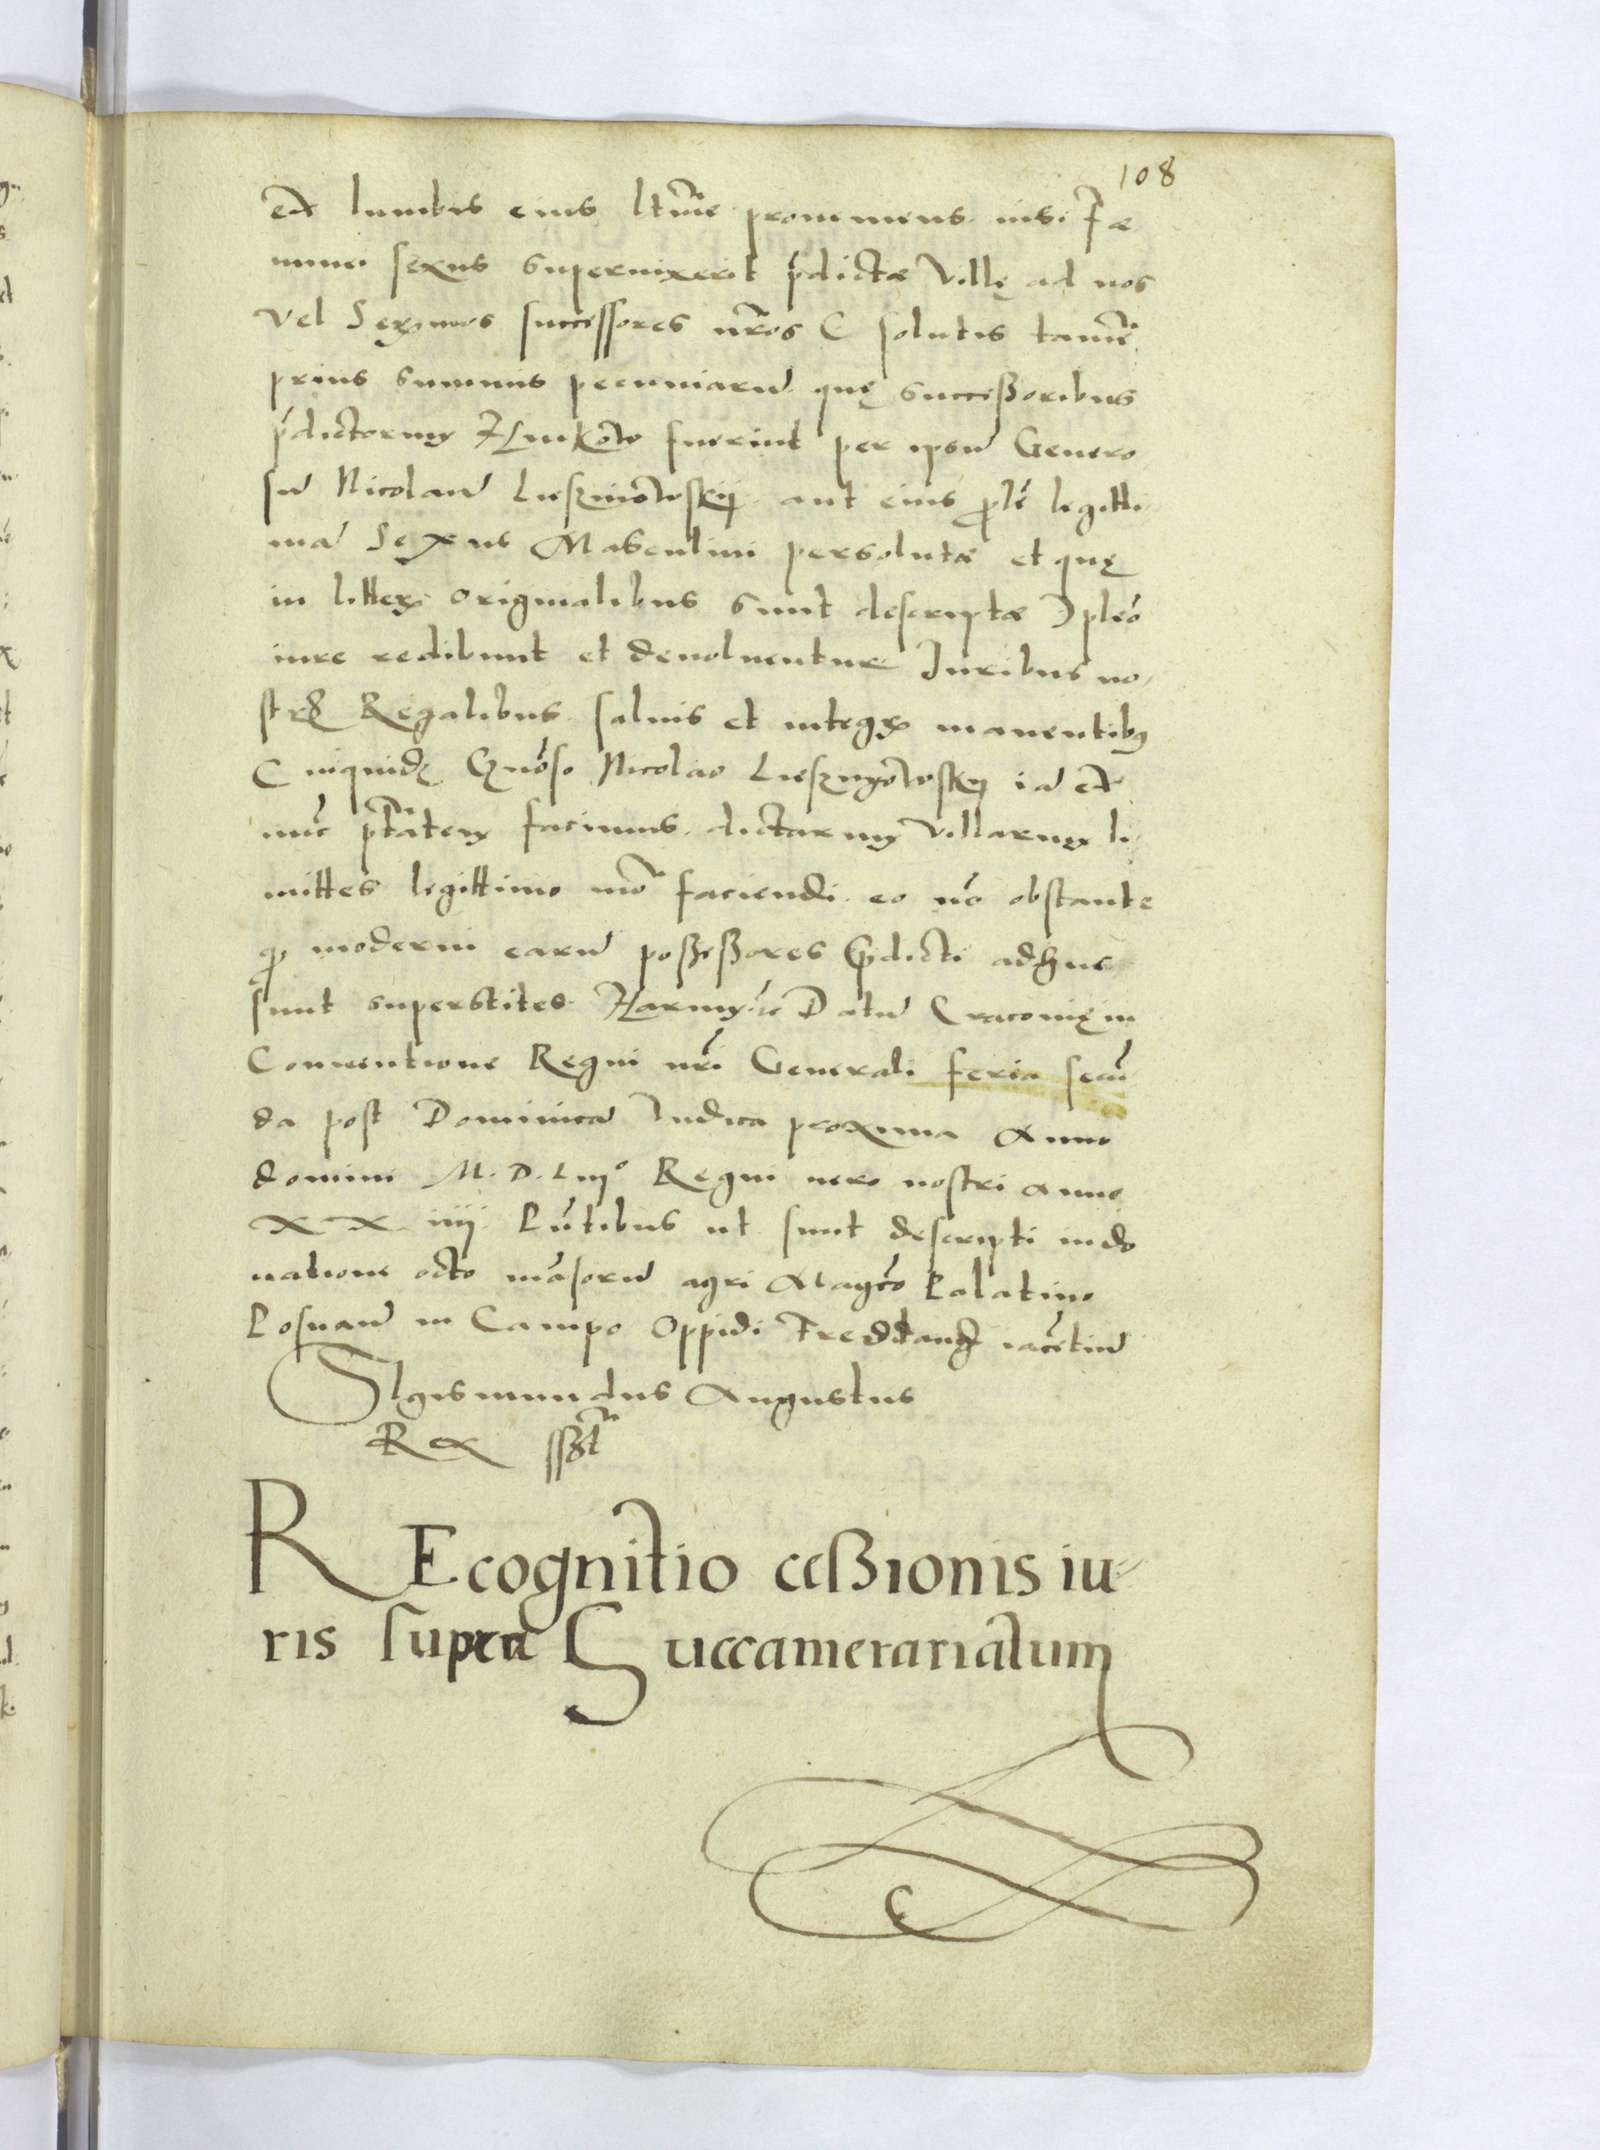 108
ex lumbis eius ltime proueniens nisi fæ
minei sexus superuixerit prdictæ Villę ad nos
Vel Serenmos successores nros C solutis tamen
prius summis pecuniarum quę successoribus
prdictorum fuerint per ipsum Genero
sum Nicolaum aut eius prolem legitti
mam Sexus Masculini persolutæ et quę
in litteris originalibus sunt descriptæ pleno
iure redibunt et deuoluentur Juribus no
stris Regalibus saluis et integris manentibus
Cuiquidem Gnoso Nicolao id ex
nunc ptatem facimus dictarum villarum li
mittes legittimo mo faciendi eo non obstante
quod moderni earum possessores prdicti adhuc
sunt superstites Harum rc Datum Cracouię in
Conuentione Regni nri Generali feria secun
da post Dominicam Iudica proxima Anno
domini M. D. Liijo Regni uero nostri Anno
XXiiij Pntibus ut sunt descripti in do
natione octo mansorum agri Magco Palatino
Posnan in Campo Oppidi iacentium
SIgismundus Augustus
Rex sszt
REcognitio ceßionis iu
ris supra Succamerariatum